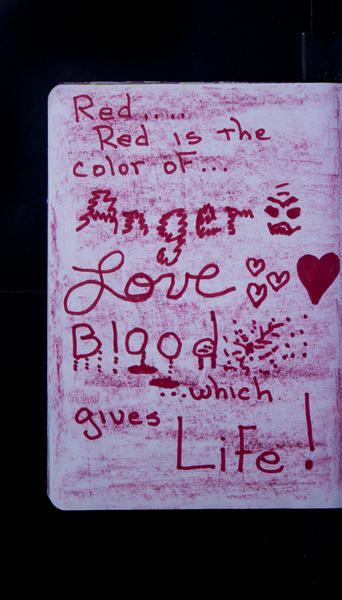 Red.....
Red is the
color of...
Anger
Love
Blood
...which
gives
Life!